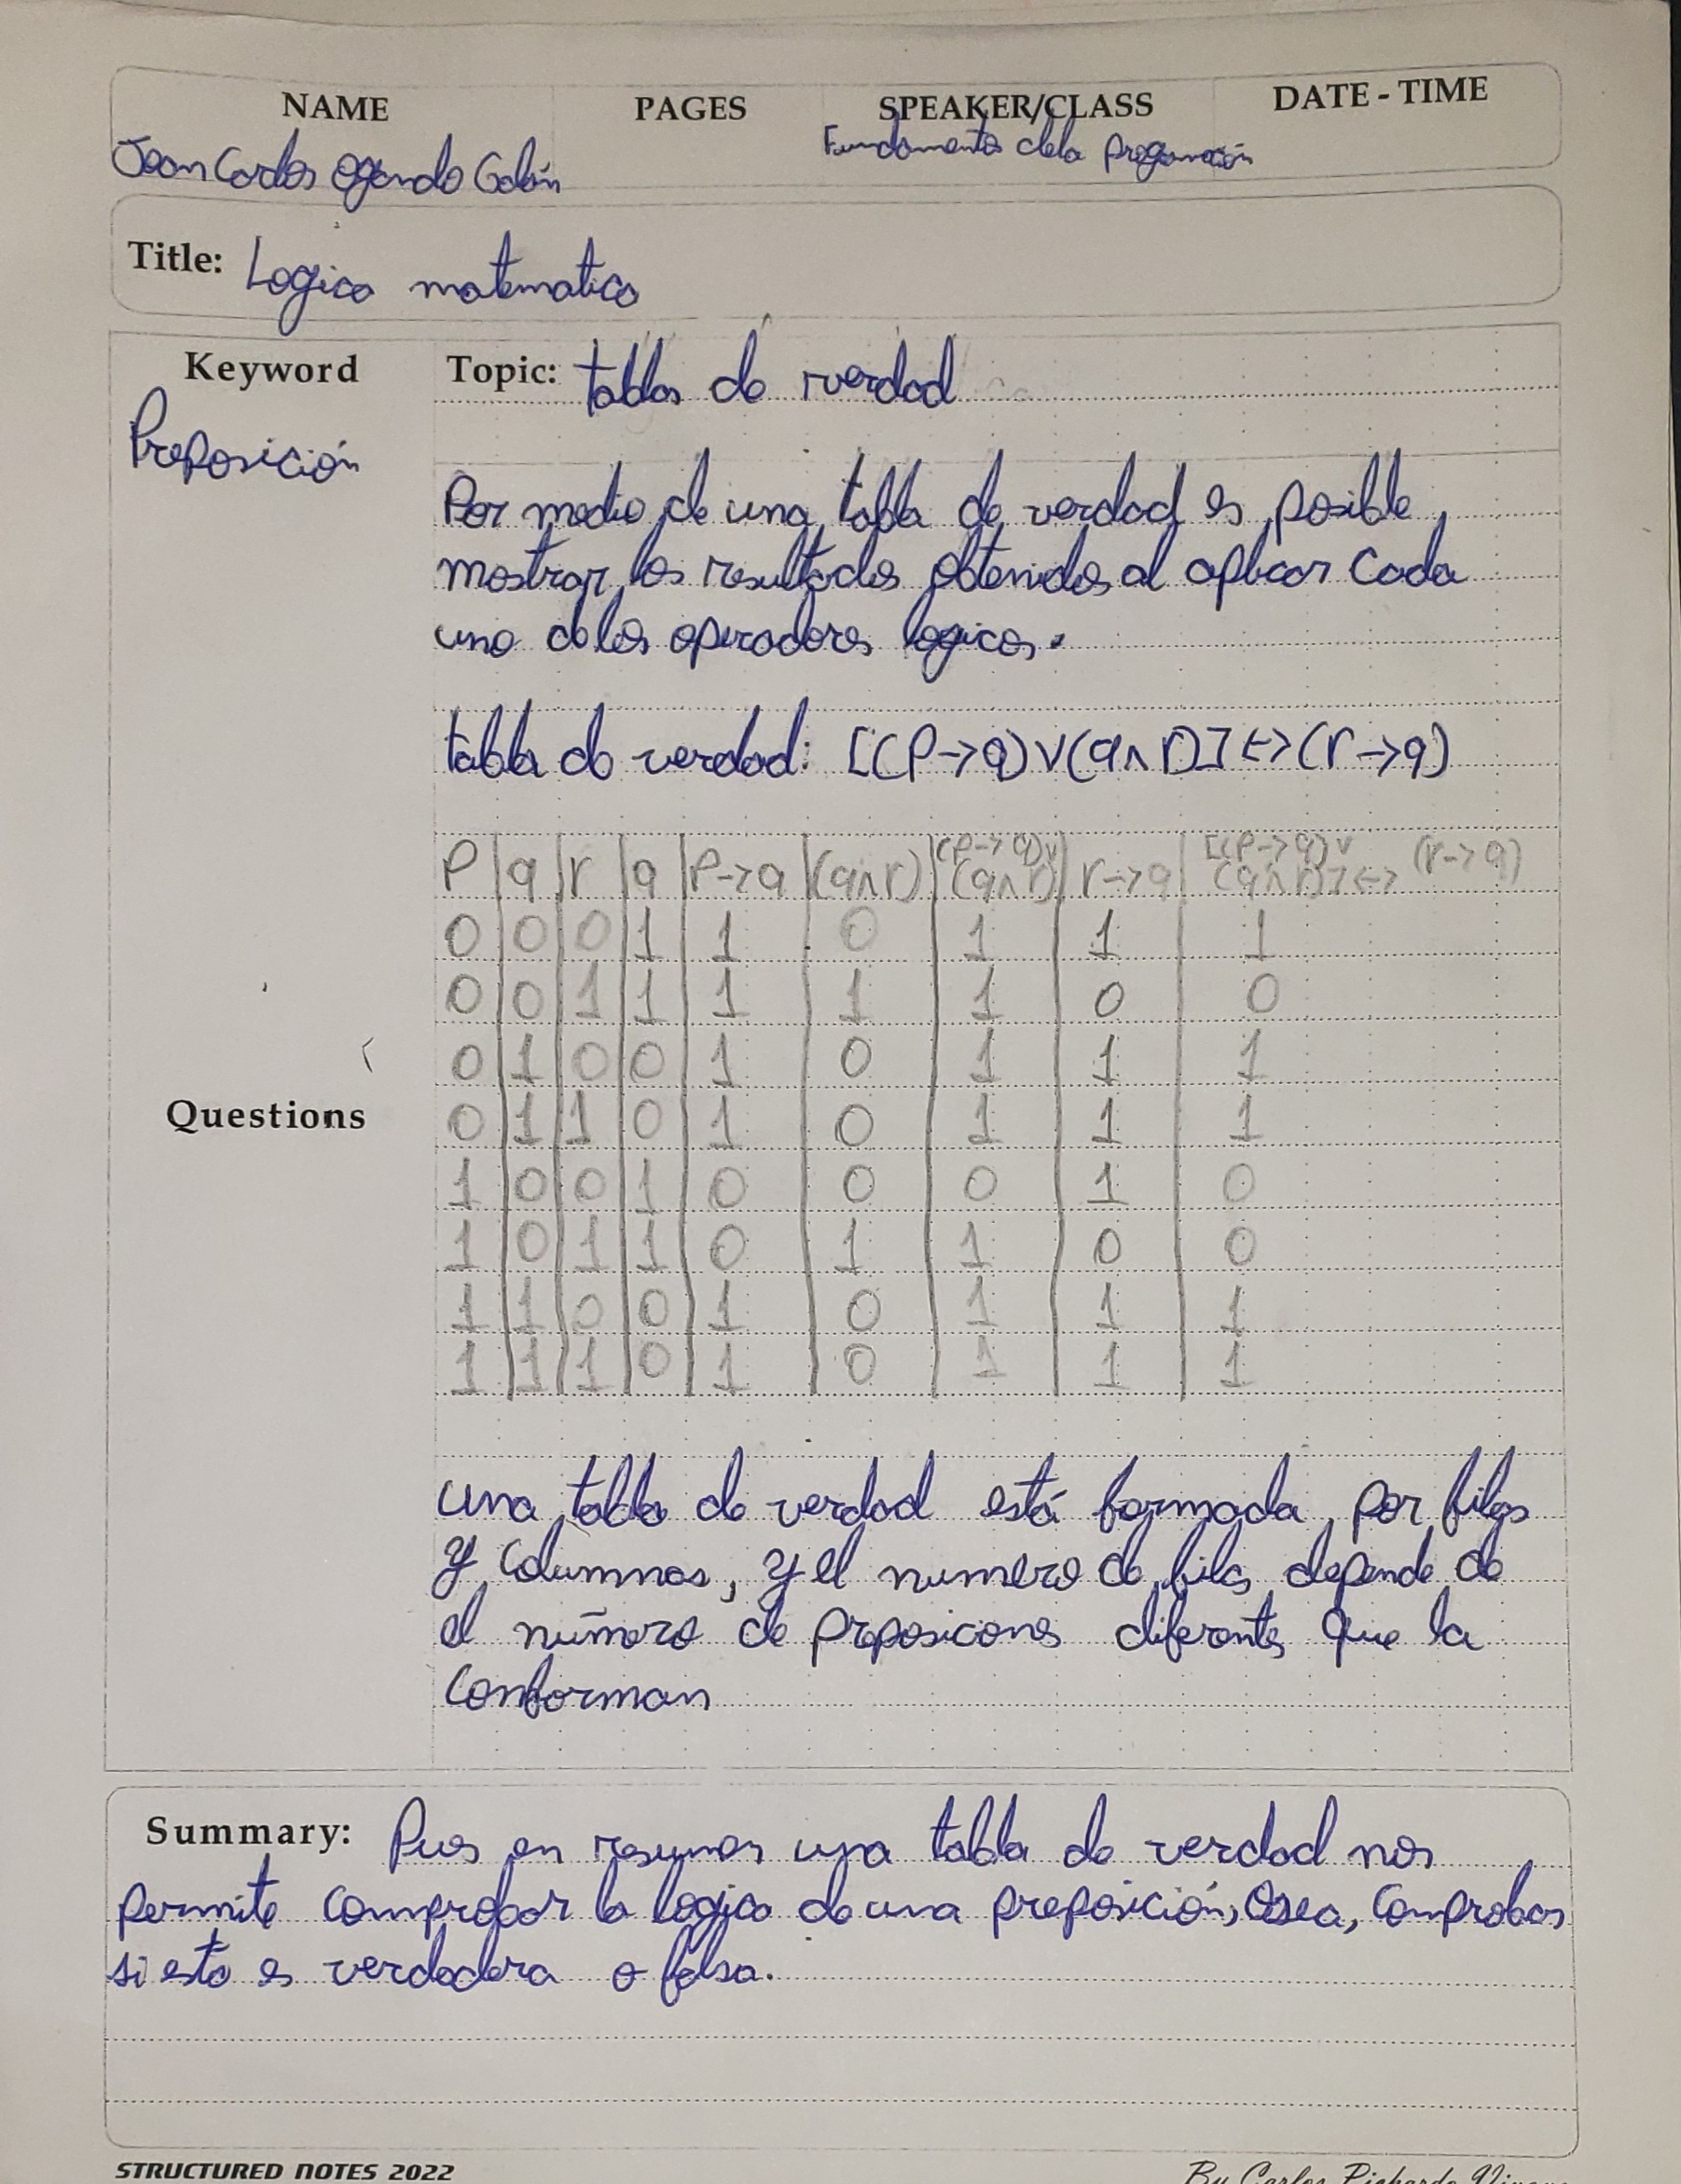 NAME PAGES SPEAKER/CLASS DATE - TIME
Jean Carlos Ogando Galán Fundamento de la Progamación
Title: Logica matematica
Keyword Topic: tablas de verdad
Preposición
Por medio de una tabla de verdad es posible
mostrar los resultados obtenidos al aplicar cada
uno de los operadores logicos.
tabla de verdad: [(P→q)∨(q∧r)]↔(r→q)
P q r q P→q (q∧r) (P→q)∨(q∧r) r→q [(P→q)∨(q∧r)]↔(r→q)
0 0 0 1 1 0 1 1 1
0 0 1 1 1 1 1 0 0
0 1 0 0 1 0 1 1 1
Questions 0 1 1 0 1 0 1 1 1
1 0 0 1 0 0 0 1 0
1 0 1 1 0 1 1 0 0
1 1 0 0 1 0 1 1 1
1 1 1 0 1 0 1 1 1
una tabla de verdad está formada por filas
y columnas, y el numero de filas depende de
el número de preposicones diferentes que la
conforman
Summary: Pues en resumen una tabla de verdad nos
permite comprobar la logica de una preposición, Osea, comprobar
si esta es verdadera o falsa.
STRUCTURED NOTES 2022 By Carlos Pichardo